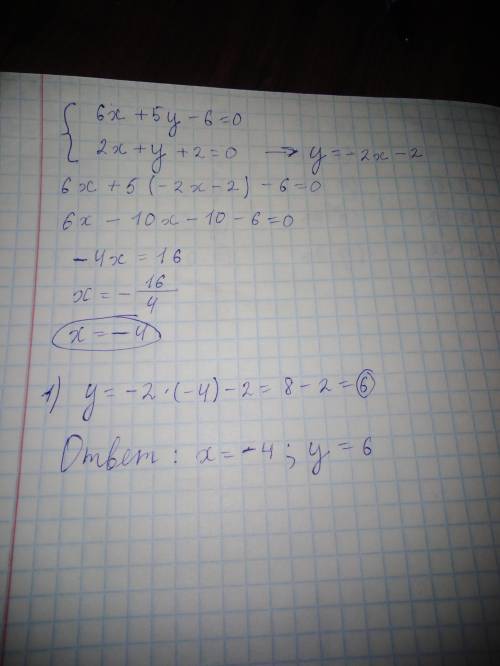 6x + 5y - 6 = 0
2x + y + 2 = 0 → y = -2x - 2
6x + 5(-2x - 2) - 6 = 0
6x - 10x - 10 - 6 = 0
-4x = 16
x = - 16/4
x = -4
1) y = -2 · (-4) - 2 = 8 - 2 = 6
Ответ: x = -4; y = 6